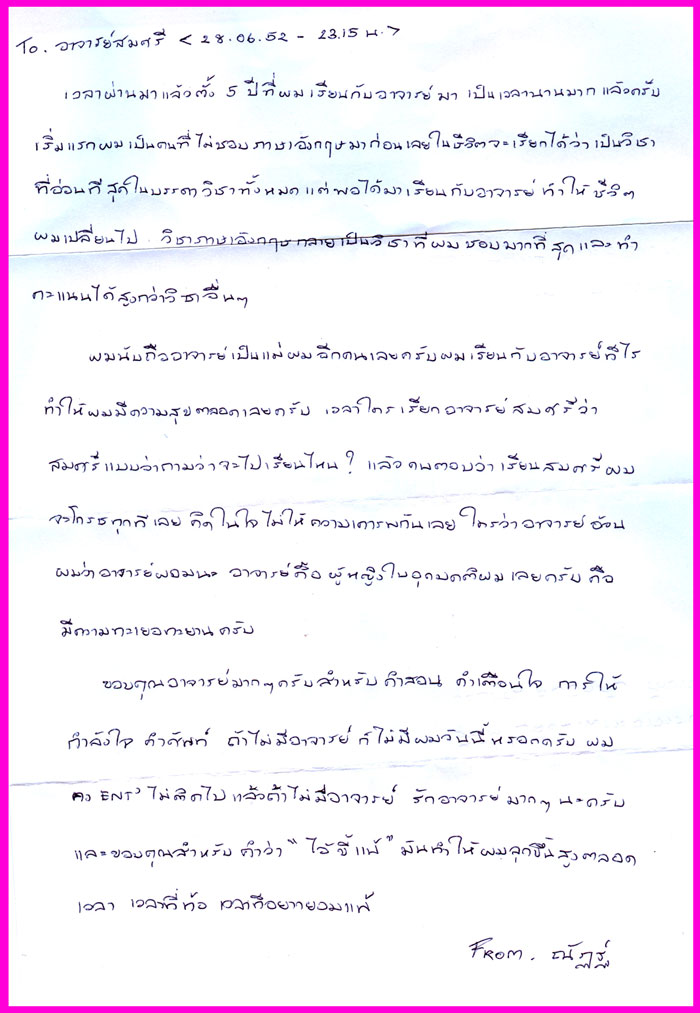 To. อาจารย์สมศรี < 28.06.52 - 23.15 น. >
เวลาผ่านมาแล้วตั้ง 5 ปีที่ผมเรียนกับอาจารย์มา เป็นเวลานานมาก แล้วครับ
เริ่มแรกผมเป็นคนที่ไม่ชอบภาษาอังกฤษมาก่อนเลยในชีวิตจะเรียกได้ว่า เป็นวิชา
ที่อ่อนที่สุดในบรรดาวิชาทั้งหมด แต่พอได้มาเรียนกับอาจารย์ ทำให้ ชีวิต
ผมเปลี่ยนไป วิชาภาษาอังกฤษกลายเป็นวิชาที่ผมชอบมากที่สุด และทำ
คะแนนได้สูงกว่าวิชาอื่นๆ
ผมนับถืออาจารย์เป็นแม่ผมอีกคนเลยครับผมเรียนกับอาจารย์ทีไร
ทำให้ผมมีความสุขตลอดเลยครับ เวลาใครเรียกอาจารย์สมศรีว่า
สมศรีแบบว่าถามว่าจะไปเรียนไหน? แล้วคนตอบว่า เรียนสมศรีผม
จะโกรธทุกทีเลย คิดในใจไม่ให้ความเคารพกันเลย ใครว่าอาจารย์อ้วน
ผมว่าอาจารย์ผอมนะ อาจารย์คือ ผู้หญิงในอุดมคติผมเลยครับ คือ
มีความทะเยอทะยานครับ
ขอบคุณอาจารย์มากๆครับสำหรับ คำสอน คำเตือนใจ การให้
กำลังใจ คำศัพท์ ถ้าไม่มีอาจารย์ ก็ไม่มีผมวันนี้หรอกครับ ผม
คง ENT' ไม่ติดไปแล้วถ้าไม่มีอาจารย์ รักอาจารย์มากๆ นะครับ
และขอบคุณสำหรับ คำว่า " ไอ้ขี้แพ้ " มันทำให้ผมลุกขึ้นสู้ตลอด
เวลา เวลาที่ท้อ เวลาที่อยากยอมแพ้
FROM.